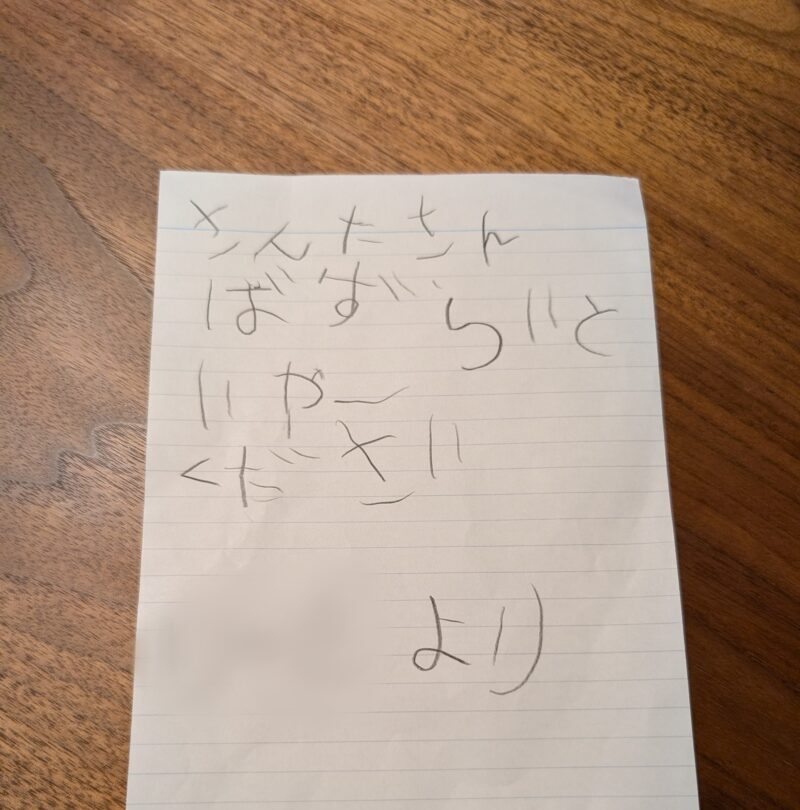 さんたさん
ばずらいと
いやー
ください
より